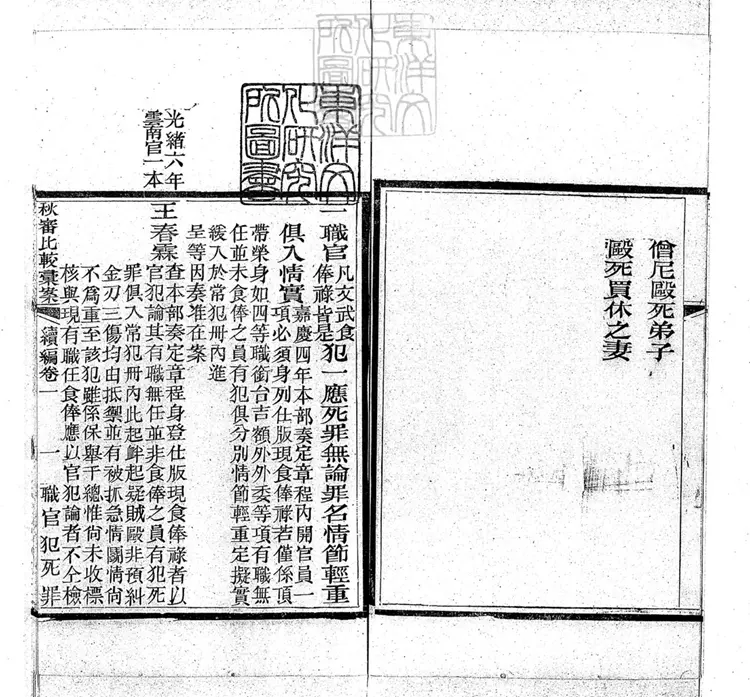 僧尼毆死弟子
毆死買休之妻
東洋文
化研究
所圖書
東洋文
化研究
所圖書
一職官凡文武食俸祿皆是犯一應死罪無論罪名情節輕重
俱入情實嘉慶四年本部奏定章程內開官員一項必須身列仕版現食俸祿若僅係頂
帶榮身如四等職銜台吉額外外委等項有職無
任並未食俸之員有犯俱分別情節輕重定擬實
緩入於常犯冊內進
呈等因奏准在案
光緒六年
雲南官一本
王春霖查本部奏定章程身登仕版現食俸祿者以官犯論其有職無任並非食俸之員有犯死
罪俱入常犯冊內此起衅起疑賊毆非預糾
金刃三傷均由抵禦並有被抓急情鬬情尚
不爲重至該犯雖係保舉千總惟尚未收標
核與現有職任食俸應以官犯論者不仝檢
秋審比較彙案 續編卷一 一 職官犯死罪